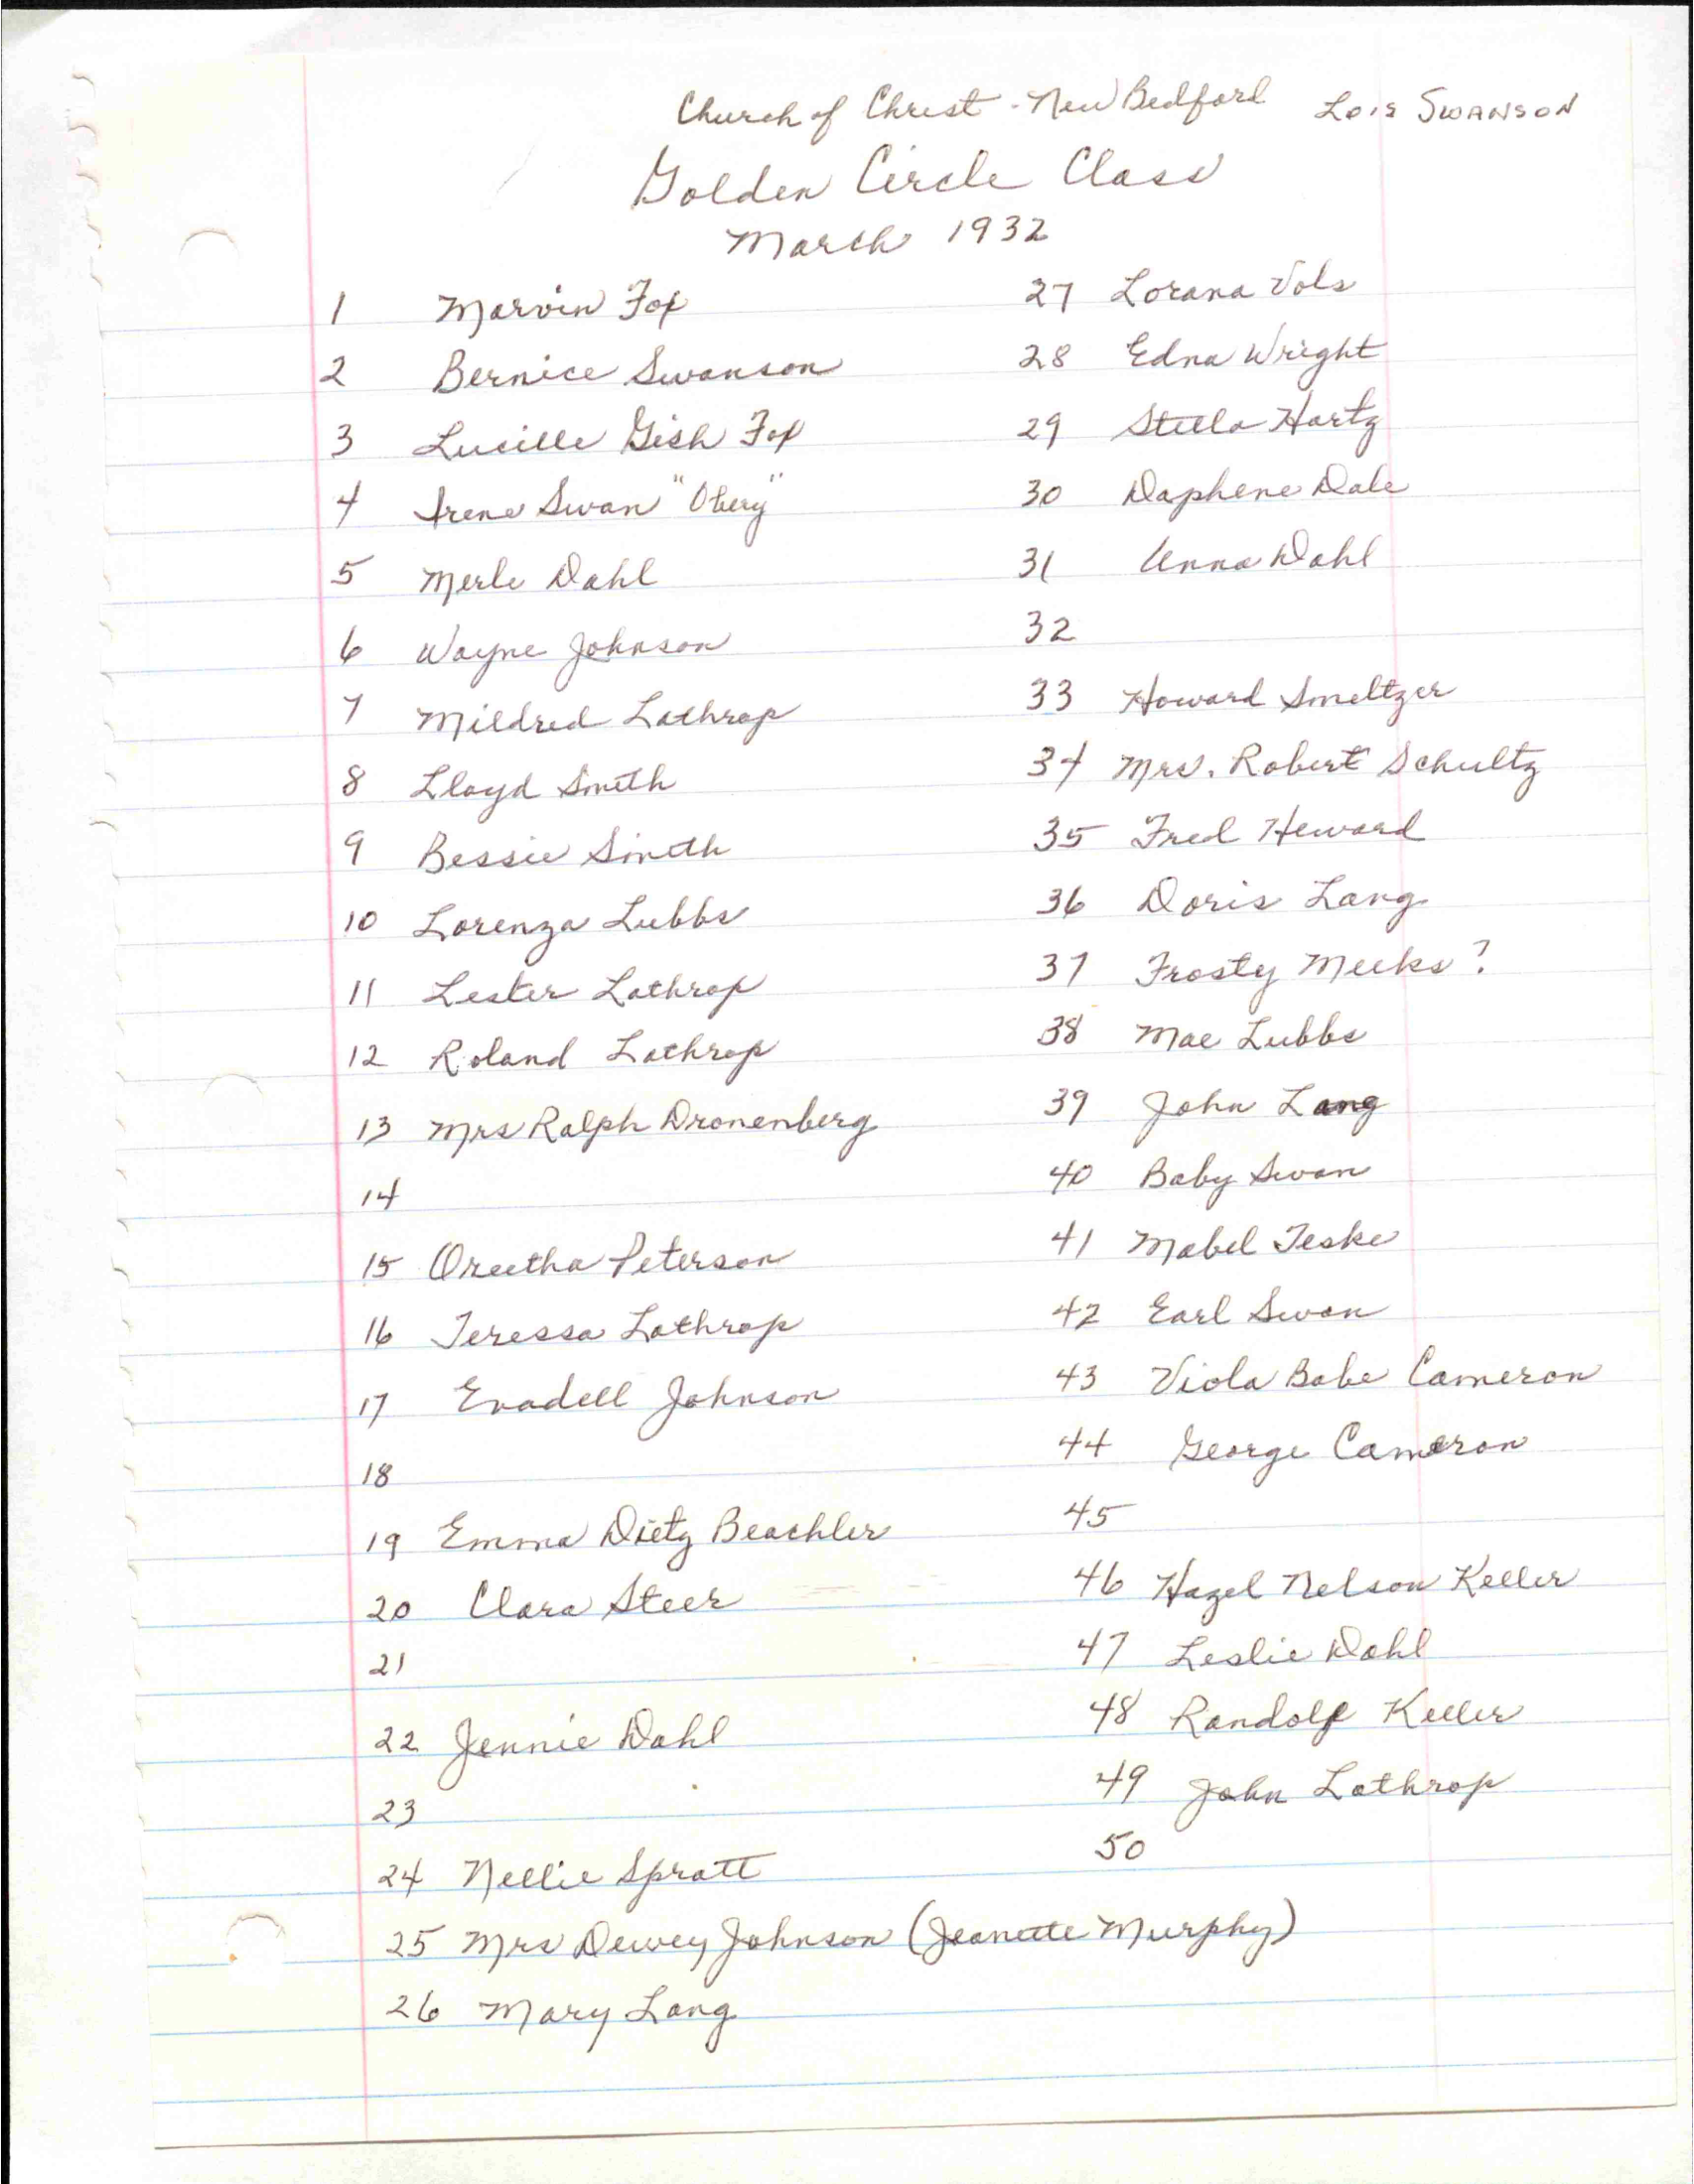 Church of Christ - New Bedford Lois Swanson
Golden Circle Class
March 1932
1 Marvin Fox
2 Bernice Swanson
3 Lucille Gish Fox
4 Irene Swan "Obery"
5 Merle Dahl
6 Wayne Johnson
7 Mildred Lathrop
8 Lloyd Smith
9 Bessie Smith
10 Lorenza Lubbs
11 Lester Lathrop
12 Roland Lathrop
13 Mrs Ralph Dronenberg
14
15 Oreetha Peterson
16 Teressa Lathrop
17 Evadell Johnson
18
19 Emma Dietz Beachler
20 Clara Steer
21
22 Jennie Dahl
23
24 Nellie Spratt
25 Mrs Dewey Johnson (Jeanette Murphy)
26 Mary Lang
27 Lorana Vols
28 Edna Wright
29 Stella Hartz
30 Daphene Dale
31 Anna Dahl
32
33 Howard Smeltzer
34 Mrs. Robert Schultz
35 Fred Heward
36 Doris Lang
37 Frosty Meeks ?
38 Mae Lubbs
39 John Lang
40 Baby Swan
41 Mabel Teske
42 Earl Swan
43 Viola Babe Cameron
44 George Cameron
45
46 Hazel Nelson Keller
47 Leslie Dahl
48 Randolp Keller
49 John Lathrop
50